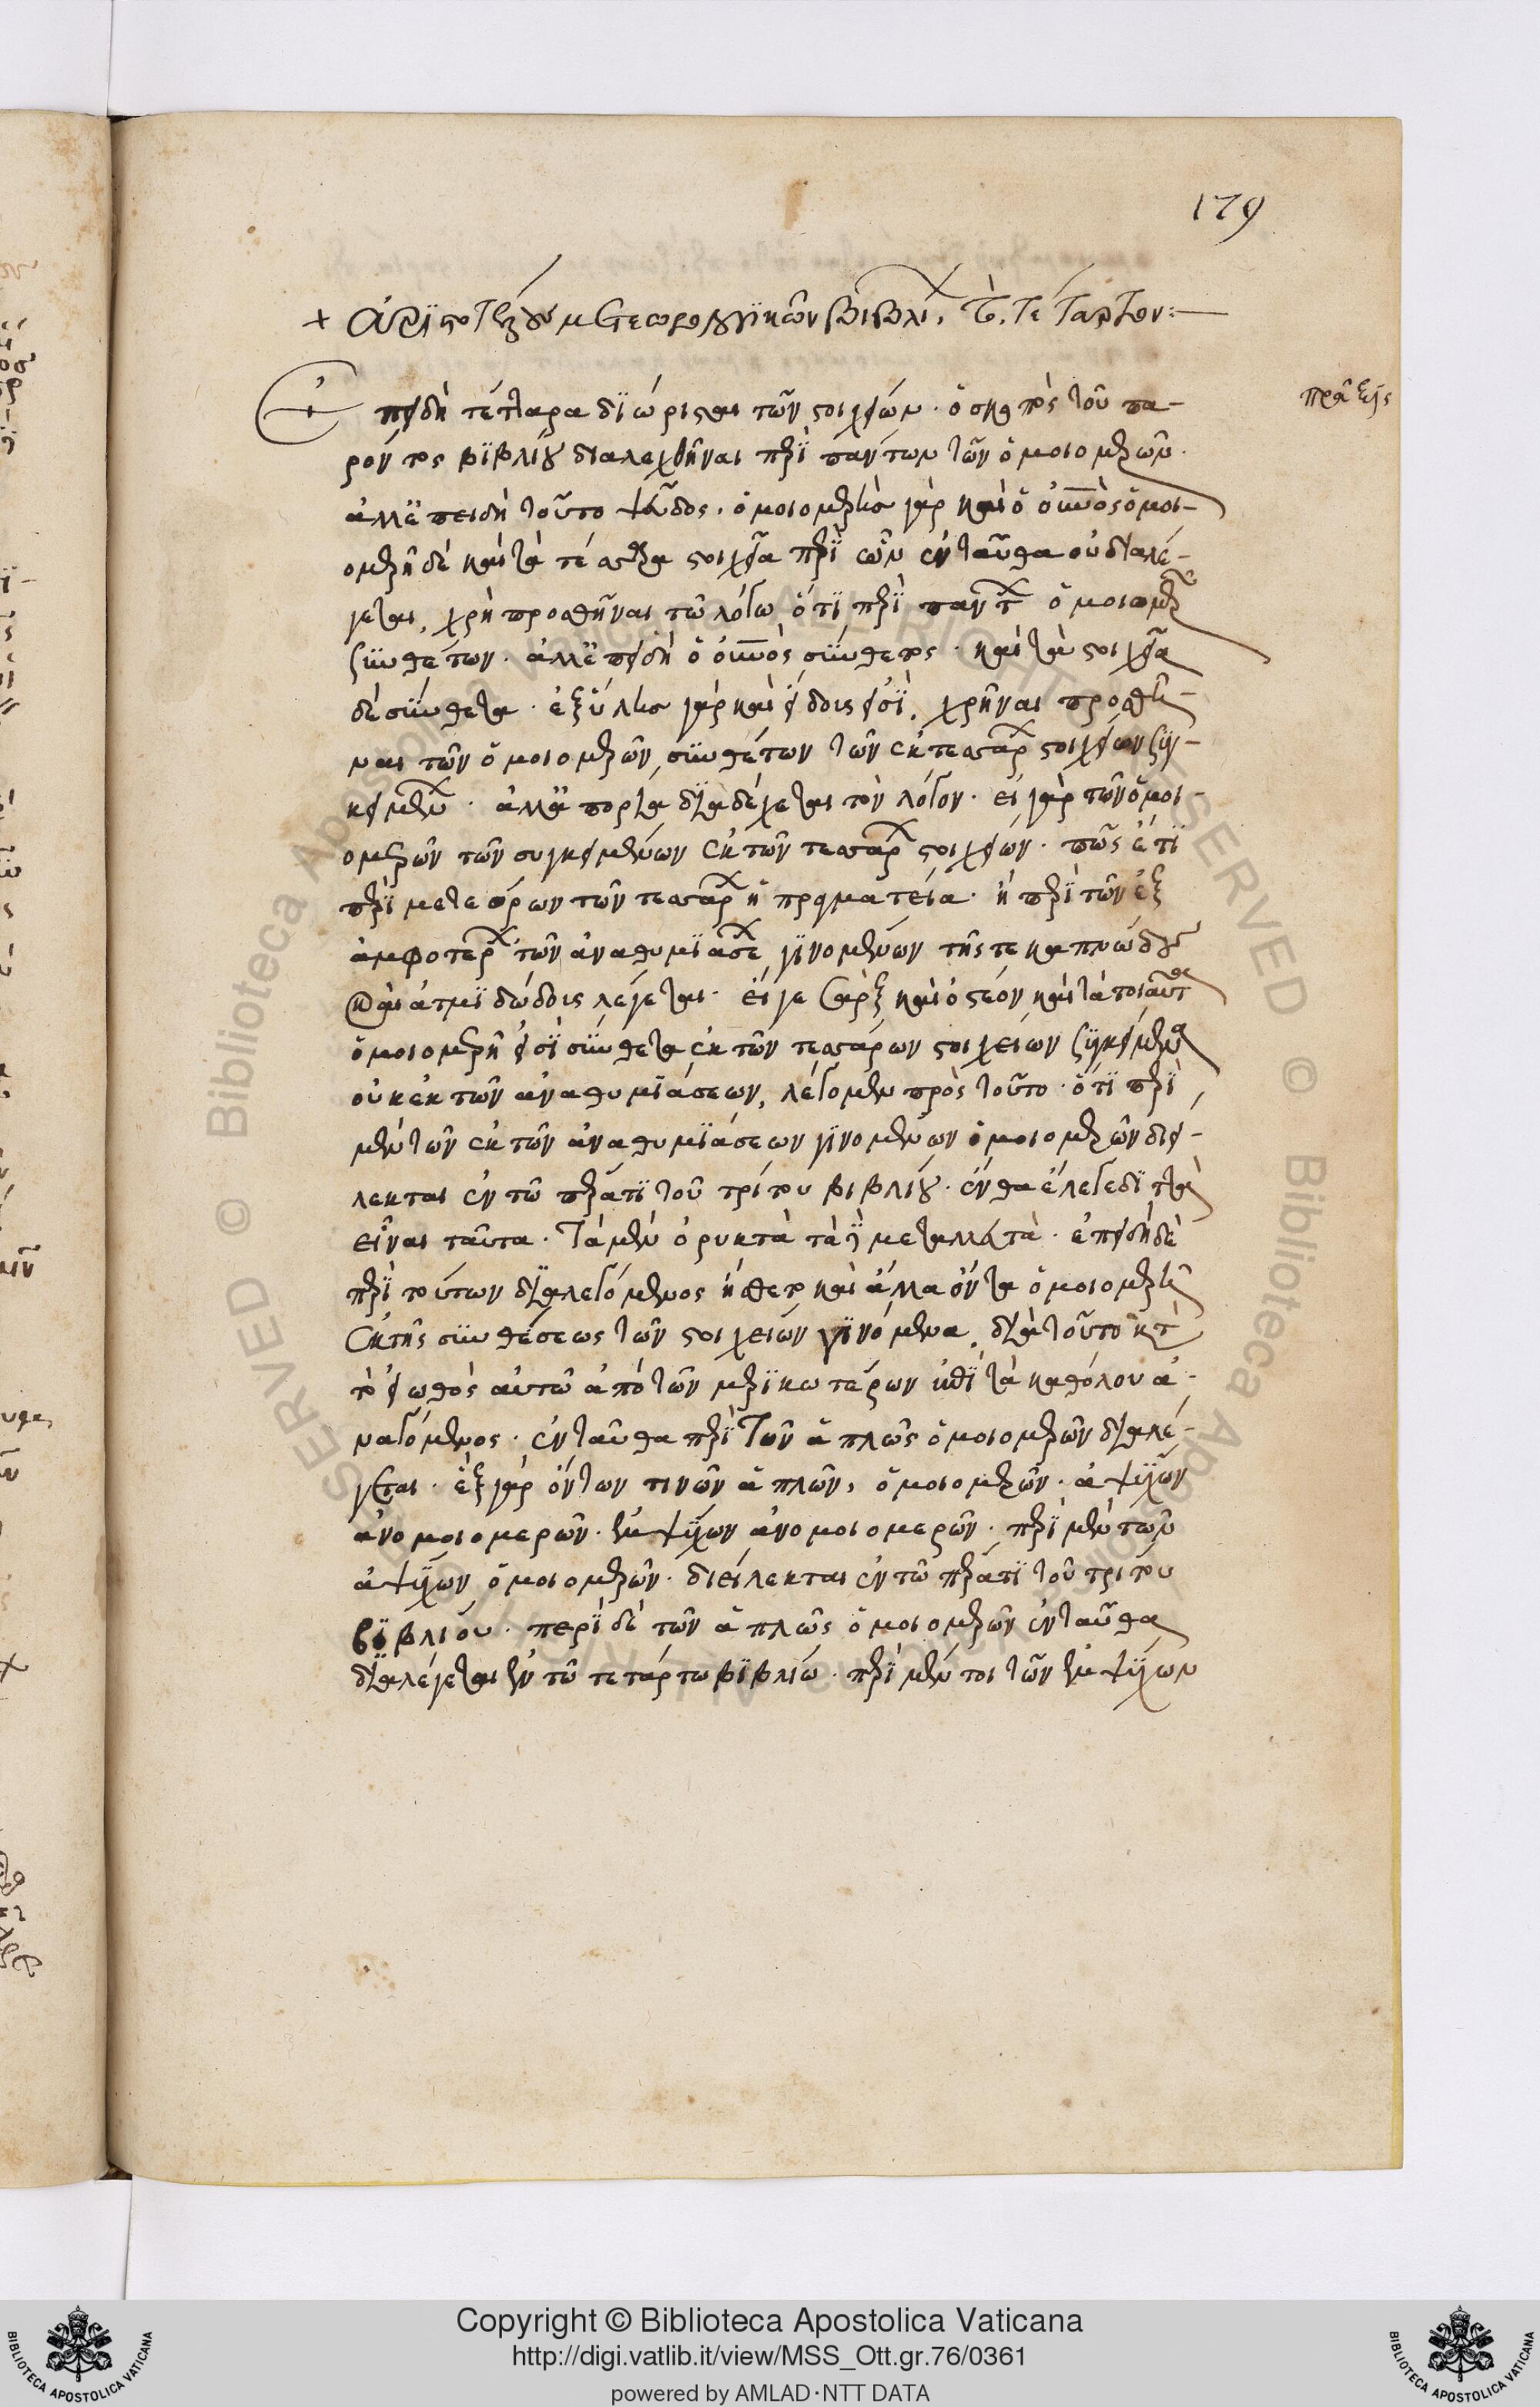 179
+ Ἀριστοτέλους μετεωρολογικῶν βιβλίον τὸ τέταρτον:—
πρᾶξις
Ἐπειδὴ τέτταρα διώρισται τῶν στοιχείων. ὁ σκοπὸς τοῦ πα-
ρόντος βιβλίου διαλεχθῆναι περὶ πάντων τῶν ὁμοιομερῶν.
ἀλλ' ἐπειδὴ τοῦτο ψεῦδος. ὁμοιομερὴς γὰρ καὶ ὁ οὐρανὸς ὁμοι-
ομερῆ δὲ καὶ τὰ τέσσαρα στοιχεῖα περὶ ὧν ἐνταῦθα οὐ διαλέ-
γεται, χρὴ προσθῆναι τῶ λόγω ὅτι περὶ πάντων ὁμοιομερῶν
συνθέτων. ἀλλ' ἐπειδὴ ὁ οὐρανὸς σύνθετος. καὶ τὰ στοιχεῖα
δὲ σύνθετα. ἐξ ὕλης γὰρ καὶ εἴδους εἰσὶ, χρῆναι προσθεῖ-
ναι τῶν ὁμοιομερῶν συνθέτων τῶν ἐκ τεσσάρων στοιχείων συγ-
κειμένων. ἀλλ' ἀπορία διαδέχεται τὸν λόγον. εἰ γὰρ τῶν ὁμοι-
ομερῶν τῶν συγκειμένων ἐκ τῶν τεσσάρων στοιχείων. πῶς ἔτι
περὶ μετεώρων τῶν τεσσάρων ἡ πραγματεία. ἢ περὶ τῶν ἐξ
ἀμφοτέρων τῶν ἀναθυμιάσεων γινομένων τῆς τε καπνώδους
καὶ ἀτμιδώδους λέγεται. εἴγε σὰρξ καὶ ὀστέον καὶ τὰ τοιαῦτα
ὁμοιομερῆ εἰσὶ σύνθετα ἐκ τῶν τεσσάρων στοιχείων συγκείμενα
οὐκ ἐκ τῶν ἀναθυμιάσεων, λέγομεν πρὸς τοῦτο. ὅτι περὶ
μὲν τῶν ἐκ τῶν ἀναθυμιάσεων γινομένων ὁμοιομερῶν διεί-
λεκται ἐν τῶ πέρατι τοῦ τρίτου βιβλίου. ἔνθα ἔλεγε διττὰ
εἶναι ταῦτα. τὰ μὲν ὀρυκτὰ τὰ δὲ μεταλλευτὰ. ἐπειδὴ δὲ
περὶ τούτων διαλεγόμενος ᾔσθετο καὶ ἄλλα ὄντα ὁμοιομερῆ
ἐκ τῆς συνθέσεως τῶν στοιχείων γινόμενα, διὰ τοῦτο κατὰ
τὸ εἰωθὸς αὐτῶ ἀπὸ τῶν μερικωτέρων ἐπὶ τὰ καθόλου ἀ-
ναγόμενος. ἐνταῦθα περὶ τῶν ἁπλῶς ὁμοιομερῶν διαλέ-
γεται. ἓξ γὰρ ὄντων τινῶν ἁπλῶν, ὁμοιομερῶν. ἀψύχων
ἀνομοιομερῶν. ἐμψύχων ἀνομοιομερῶν. περὶ μὲν τῶν
ἀψύχων ὁμοιομερῶν. διείλεκται ἐν τῶ πέρατι τοῦ τρίτου
βιβλίου. περὶ δὲ τῶν ἁπλῶς ὁμοιομερῶν ἐνταῦθα
διαλέγεται ἐν τῶ τετάρτω βιβλίω. περὶ μέντοι τῶν ἐμψύχων
Copyright © Biblioteca Apostolica Vaticana
http://digi.vatlib.it/view/MSS_Ott.gr.76/0361
powered by AMLAD·NTT DATA